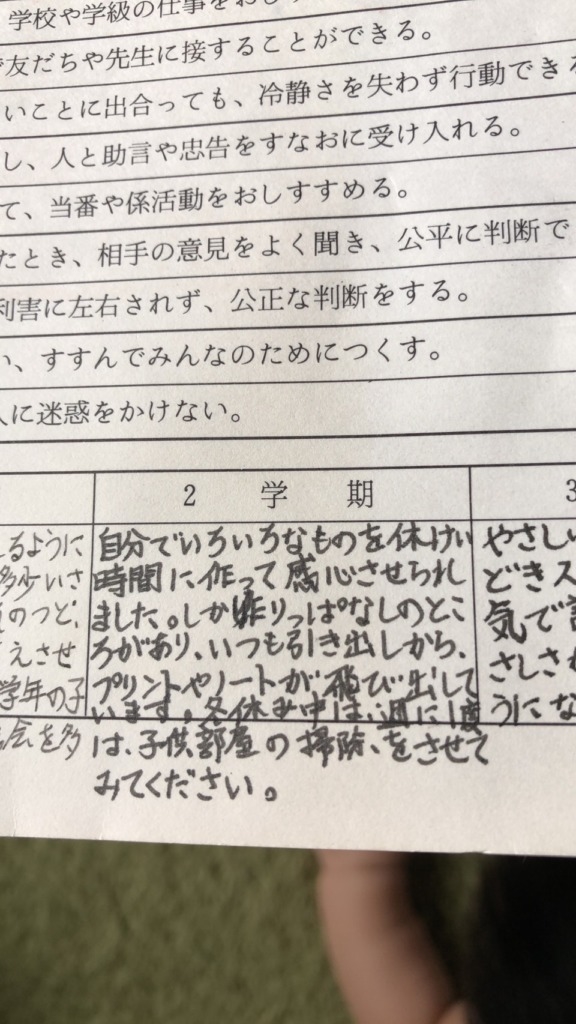 学校や学級の仕事をおし
友だちや先生に接することができる。
いことに出合っても、冷静さを失わず行動できる
し、人と助言や忠告をすなおに受け入れる。
て、当番や係活動をおしすすめる。
たとき、相手の意見をよく聞き、公平に判断で
利害に左右されず、公正な判断をする。
い、すすんでみんなのためにつくす。
人に迷惑をかけない。
2 学 期
3
るように
多少いさ
のつど、
えさせ
学年の子
会を多
自分でいろいろなものを休けい
時間に作って感心させられ
ました。しか作りっぱなしのとこ
ろがあり、いつも引き出しから、
プリントやノートが飛び出して
います。冬休み中は、週に1度
は、子供部屋の掃除、をさせて
みてください。
やさしい
どきス
気で
さしさ
うにな